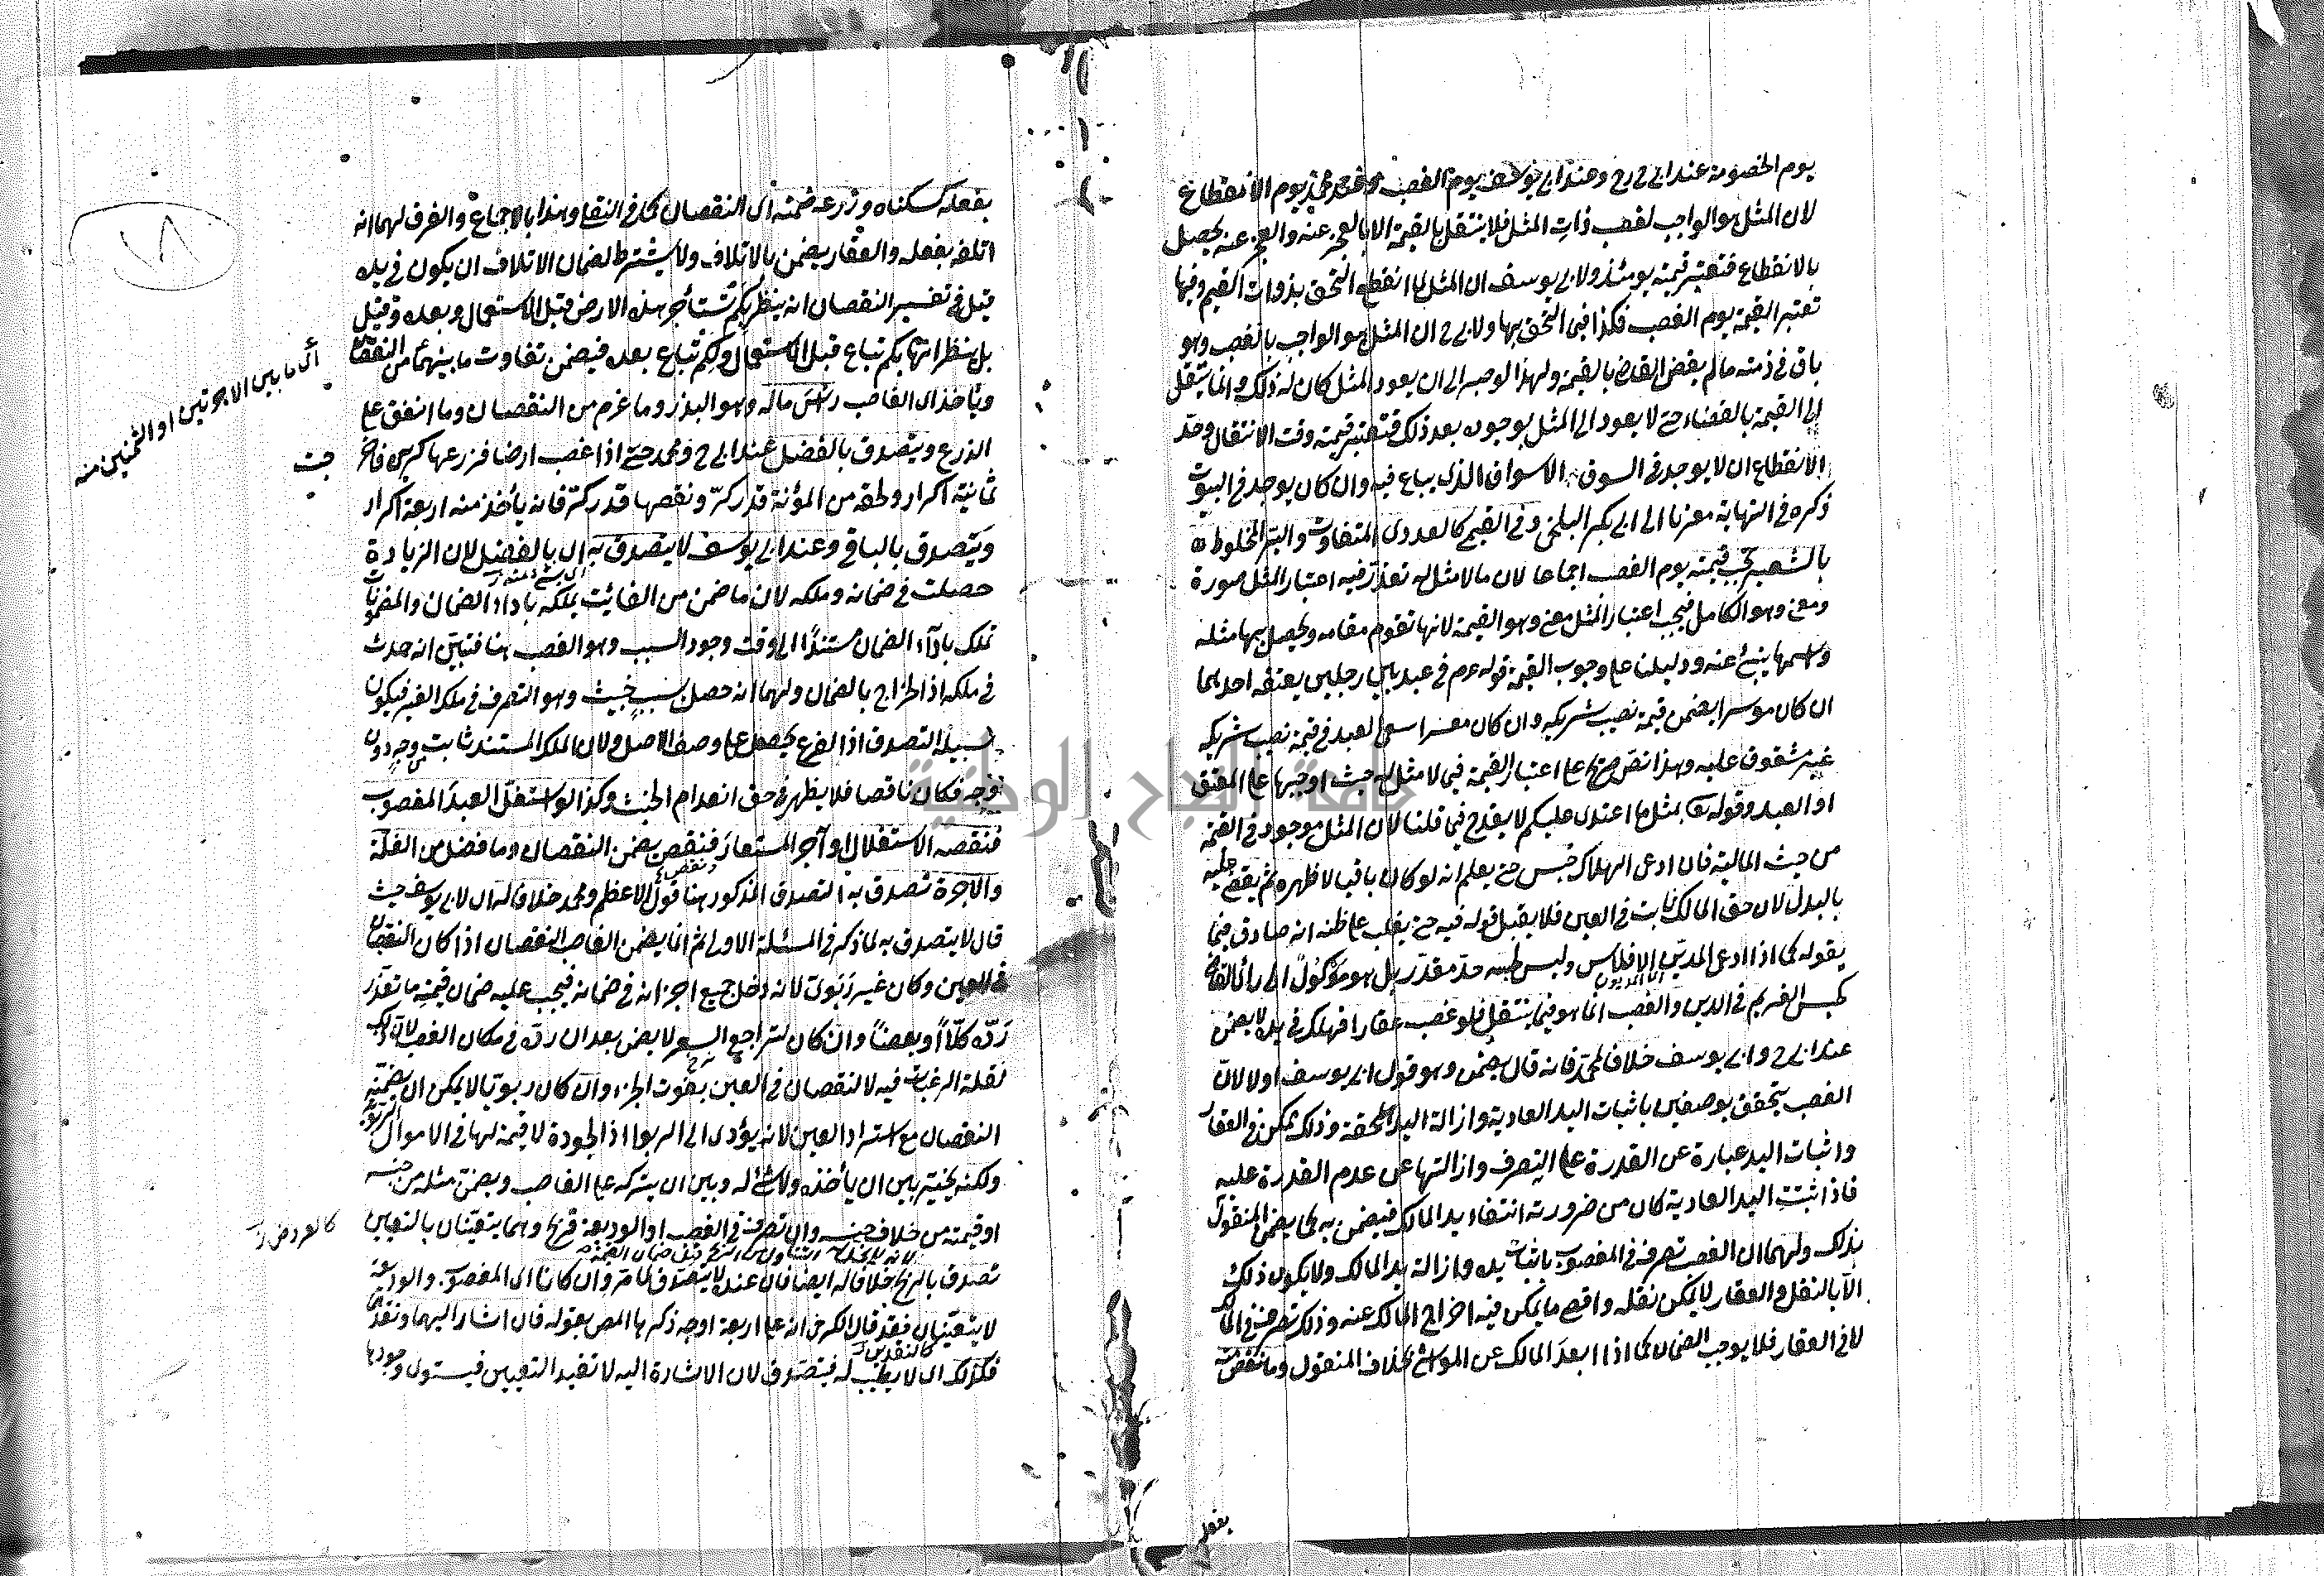 يوم الخصومة عند ابى ح رح وعند ابى يوسف يوم الغصب وعند محمد يوم الانقطاع
لان المثل هو الواجب لغصب ذات المثل فلا ينتقل بالقيمة الا بالعجز عنه والعجز عنه يحصل
بالانقطاع فتعتبر قيمته يومئذ ولابى يوسف ان المثل لما انقطع التحق بذوات القيم وفيها
تعتبر القيمة يوم الغصب فكذا فيما التحق بها ولابى ح ان المثل هو الواجب بالغصب وهو
باق فى ذمته مالم يقض القاضى بالقيمة ولهذا لو صبر الى ان يعود المثل كان له ذلك وانما ينتقل
الى القيمة بالقضاء حتى لا يعود الى المثل بوجوده بعد ذلك فتعتبر قيمته وقت الانتقال وحد
الانقطاع ان لا يوجد فى السوق الاسواق الذى يباع فيه وان كان يوجد فى البيوت
ذكره فى النهاية معزيا الى ابى بكر البلخى وفى القيمى كالعددى المتفاوت والبر المخلوط
بالشعير تجب قيمته يوم الغصب اجماعا لان مالا مثل له تعذر فيه اعتبار المثل صورة
ومعنى وهو الكامل فيجب اعتبار المثل معنى وهو القيمة لانها تقوم مقامه ويحصل بها مثله
واسمها ينبئ عنه ودليلنا على وجوب القيمة قوله عم فى عبد بين رجلين يعتقه احدهما
ان كان موسرا يضمن قيمة نصيب شريكه وان كان معسرا سعى العبد فى قيمة نصيب شريكه
غير مشقوق عليه وهذا نص صريح على اعتبار القيمة فيما لا مثل له حيث اوجبها على المعتق
او العبد وقوله تعا بمثل ما اعتدى عليكم لا يقدح فيما قلنا لان المثل موجود فى القيمة
من حيث المالية فان ادعى الهلاك حبس حتى يعلم انه لو كان باقيا لاظهره ثم يقضى عليه
بالبدل لان حق المالك ثابت فى العين فلا يقبل قوله فيه حتى يغلب على ظنه انه صادق فيما
يقوله كما اذا ادعى المديون الافلاس وليس لحبسه حد مقدر بل هو موكول الى رأى القاضى
كحبس الغريم فى الدين والغصب انما هو فيما ينتقل فلو غصب عقارا فهلك فى يده لا يضمن
عند ابى ح وابى يوسف خلافا لمحمد فانه قال يضمن وهو قول ابى يوسف اولا لان
الغصب يتحقق بوصفين باثبات اليد العادية وازالة اليد المحقة وذلك ممكن فى العقار
واثبات اليد عبارة عن القدرة على التصرف وازالتها عن عدم القدرة عليه
فاذا ثبتت اليد العادية كان من ضرورته انتفاء يد المالك فيضمن به كما يضمن المنقول
بذلك ولهما ان الغصب تصرف فى المغصوب باثبات يده وازالة يد المالك ولا يكون ذلك
الا بالنقل والعقار لا يمكن نقله واقصى ما يمكن فيه اخراج المالك عنه وذلك تصرف فى المالك
لا فى العقار فلا يوجب الضمان كما اذا ابعد المالك عن المواشى بخلاف المنقول وما نقص منه
بفعله
بفعله كسكناه وزرعه ضمنه اى النقصان كما فى النقلى وهذا بالاجماع والفرق لهما انه
اتلفه بفعله والعقار يضمن بالاتلاف ولا يشترط لضمان الاتلاف ان يكون فى يده
قيل فى تفسير النقصان انه ينظر بكم تستأجر هذه الارض قبل الاستعمال وبعده وقيل
بل ينظر انها بكم تباع قبل الاستعمال وبكم تباع بعده فيضمن تفاوت ما بينهما من النقصان
اى ما بين الاجرتين او الثمنين منه
ويأخذ اى الغاصب رأس ماله وهو البذر وما غرم من النقصان وما انفق على
الزرع ويتصدق بالفضل عند ابى ح ومحمد حتى اذا غصب ارضا فزرعها كرين فاخر
جت
ثمانية اكرار ولحقه من المؤنة قدر كر ونقصها قدر كر فانه يأخذ منه اربعة اكرار
ويتصدق بالباقى وعند ابى يوسف لا يتصدق به اى بالفضل لان الزيادة
حصلت فى ضمانه وملكه لان ما ضمن من الفائت يملكه باداء الضمان والمضمونات
تملك باداء الضمان مستندا الى وقت وجود السبب وهو الغصب هنا فتبين انه حدث
فى ملكه اذ الخراج بالضمان ولهما انه حصل بسبب خبيث وهو التصرف فى ملك الغير فيكون
سبيله التصدق اذ الفرع يحصل على وصف الاصل ولان الملك المستند ثابت من وجه دون
وجه فكان ناقصا فلا يظهر فى حق انعدام الخبث وكذا لو استغل العبد المغصوب
فنقصه الاستغلال او آجر المستعار فنقص يضمن النقصان وما فضل من الغلة
والاجرة تصدق به التصدق المذكور هنا قول الاعظم ومحمد خلافا له اى لابى يوسف حيث
قال لا يتصدق به لما ذكر فى المسئلة الاولى ثم انما يضمن الغاصب النقصان اذا كان النقصان
فى العين وكان غير ربوى لانه دخل جميع اجزائه فى ضمانه فيجب عليه ضمان قيمة ما تعذر
رده كلا او بعضا وان كان لتراجع السعر لا يضمن بعد ان رده فى مكان الغصب لان ذلك
لقلة الرغبات فيه لا لنقصان فى العين بفوت الجزء وان كان ربويا لا يمكن ان يضمنه
النقصان مع استرداد العين لانه يؤدى الى الربوا اذ الجودة لا قيمة لها فى الاموال الربوية
ولكنه يخير بين ان يأخذه ولا شئ له وبين ان يتركه على الغاصب ويضمن مثله من جنسه
او قيمته من خلاف جنسه وان تصرف فى الغصب او الوديعة فربح وهما يتعينان بالتعيين
كالعروض
تصدق بالربح خلافا له ايضا فان عنده لا يتصدق لما مر وان كانا اى المغصوب والوديعة
لا يتعينان فقد قال الكرخى انه على اربعة اوجه ذكرها المص بقوله فان اشار اليهما ونقد
كالنقدين
فكذلك اى لا يطيب له فيتصدق لان الاشارة اليه لا تفيد التعيين فيستوى وجودها
جامعة النجاح الوطنية